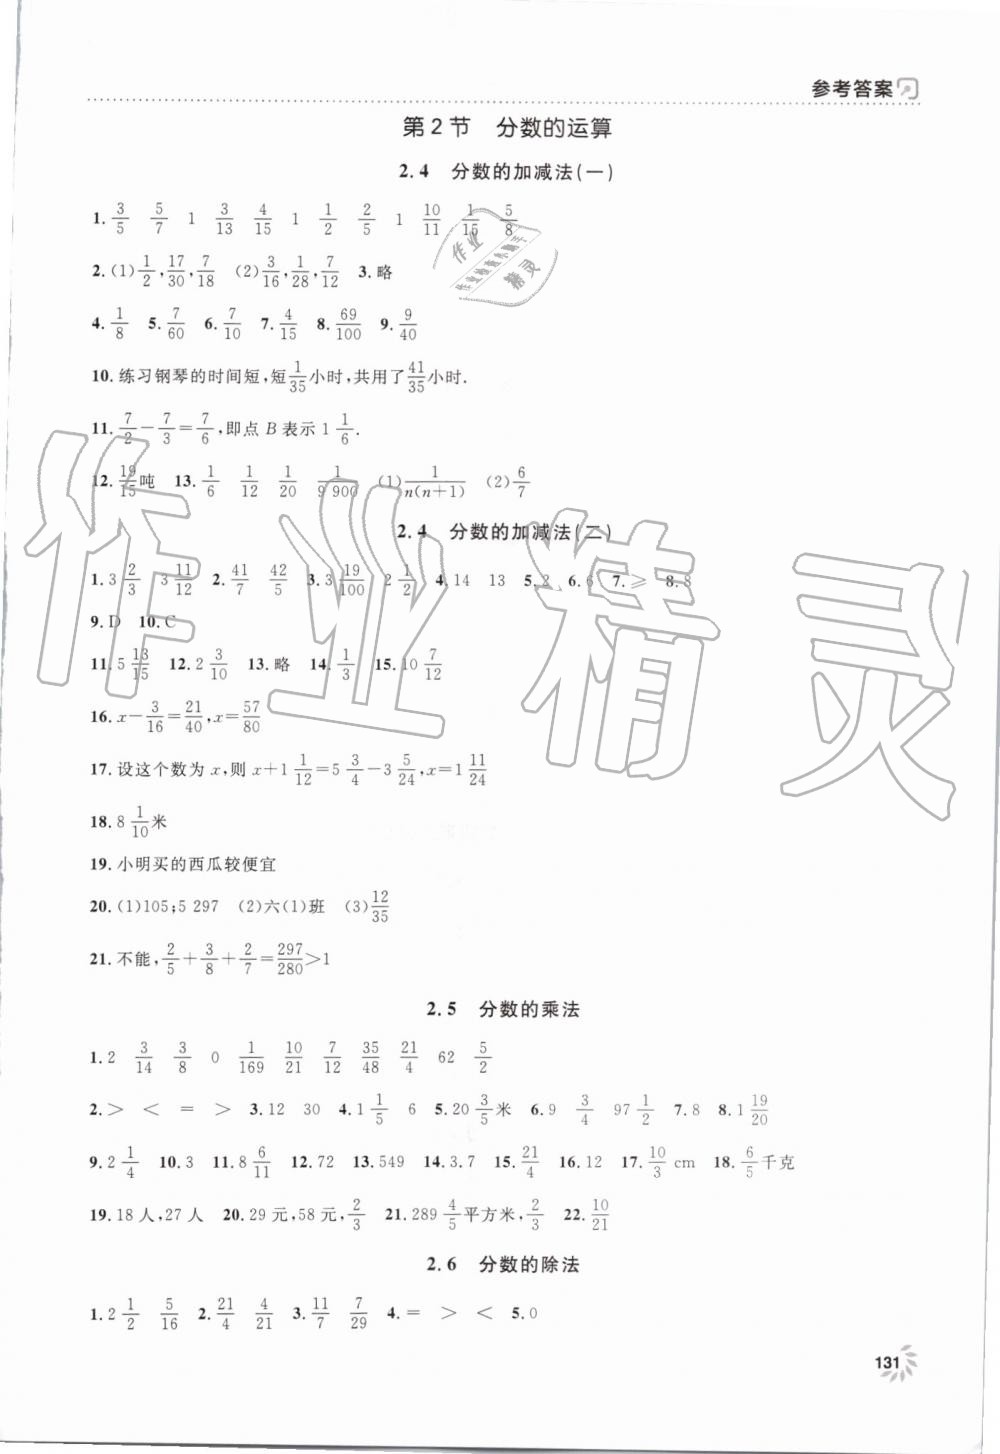 参考答案
第2节 分数的运算
2.4 分数的加减法(一)
1. 3/5 5/7 1 3/13 4/15 1 1/2 2/5 1 10/11 1/15 5/8
2.(1)1/2,17/30,7/18 (2)3/16,1/28,7/12 3.略
4. 1/8 5. 7/60 6. 7/10 7. 4/15 8. 69/100 9. 9/40
10.练习钢琴的时间短,短1/35小时,共用了41/35小时.
11. 7/2-7/3=7/6,即点B表示1 1/6.
12. 19/15吨 13. 1/6 1/12 1/20 1/9 900 (1)1/n(n+1) (2)6/7
2.4 分数的加减法(二)
1.3 2/3 3 11/12 2. 41/7 42/5 3.3 19/100 2 1/2 4.14 13 5.2 6.6 7.≥ 8.8
9.D 10.C
11.5 13/15 12.2 3/10 13.略 14. 1/3 15.10 7/12
16.x-3/16=21/40,x=57/80
17.设这个数为x,则x+1 1/12=5 3/4-3 5/24,x=1 11/24
18.8 1/10米
19.小明买的西瓜较便宜
20.(1)105;5 297 (2)六(1)班 (3)12/35
21.不能,2/5+3/8+2/7=297/280>1
2.5 分数的乘法
1.2 3/14 3/8 0 1/169 10/21 7/12 35/48 21/4 62 5/2
2.> < = > 3.12 30 4.1 1/5 6 5.20 3/5米 6.9 3/4 97 1/2 7.8 8.1 19/20
9.2 1/4 10.3 11.8 6/11 12.72 13.549 14.3.7 15. 21/4 16.12 17. 10/3 cm 18. 6/5千克
19.18人,27人 20.29元,58元,2/3 21.289 4/5平方米,2/3 22. 10/21
2.6 分数的除法
1.2 1/2 5/16 2. 21/4 4/21 3. 11/7 7/29 4.= > < 5.0
131
作业精灵